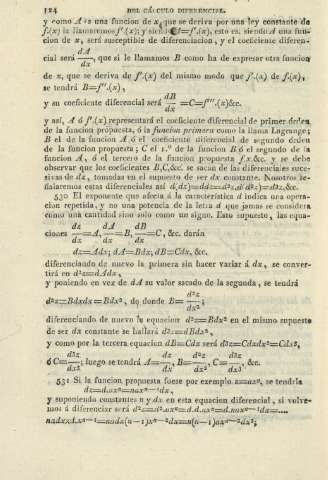 124 DEL CÁLCULO DIFERENCIAL.
y como A es una funcion de x, que se deriva por una ley constante de
f.(x) la llamaremos f'.(x); y siendo =f'.(x), esto es, siendo A una fun-
cion de x, será susceptible de diferenciacion, y el coeficiente diferen-
cial será dA/dx, que si le llamamos B como ha de expresar otra funcion
de x, que se deriva de f'.(x) del mismo modo que f'.(x) de f.(x),
se tendrá B=f''.(x),
y su coeficiente diferencial será dB/dx=C=f'''.(x)&c.
y así, A ó f'.(x) representará el coeficiente diferencial de primer órden
de la funcion propuesta, ó la funcion primera como la llama Lagrange;
B el de la funcion A ó el coeficiente diferencial de segundo órden
de la funcion propuesta; C el 1.º de la funcion B ó el segundo de la
funcion A, ó el tercero de la funcion propuesta f.x &c. y se debe
observar que los coeficientes B,C,&c. se sacan de las diferenciales suce-
sivas de dz, tomadas en el supuesto de ser dx constante. Nosotros se-
ñalaremos estas diferenciales así d.dz=ddz=d²z, d.d²z=d³z, &c.
530 El exponente que afecta á la característica d indica una opera-
cion repetida, y no una potencia de la letra d que jamas se considera
como una cantidad sino solo como un signo. Esto supuesto, las equa-
ciones dz/dx=A, dA/dx=B, dB/dx=C, &c. darán
dz=Adx; dA=Bdx, dB=Cdx, &c.
diferenciando de nuevo la primera sin hacer variar á dx, se conver-
tirá en d²z=dAdx,
y poniendo en vez de dA su valor sacado de la segunda, se tendrá
d²z=Bdxdx=Bdx², de donde B=d²z/dx²;
diferenciando de nuevo la equacion d²z=Bdx² en el mismo supuesto
de ser dx constante se hallará d³z=dBdx²,
y como por la tercera equacion dB=Cdx será d³z=Cdxdx²=Cdx³,
ó C=d³z/dx³; luego se tendrá A=dz/dx, B=d²z/dx², C=d³z/dx³, &c.
531 Si la funcion propuesta fuese por exemplo z=axⁿ, se tendria
dz=d.axⁿ=naxⁿ⁻¹dx,
y suponiendo constantes n y dx en esta equacion diferencial, si volve-
mos á diferenciar será d²z=d².axⁿ=d.d.axⁿ=d.naxⁿ⁻¹dx=....
nadxd.xⁿ⁻¹=nadx(n−1)xⁿ⁻²dx=n(n−1)axⁿ⁻²dx²;